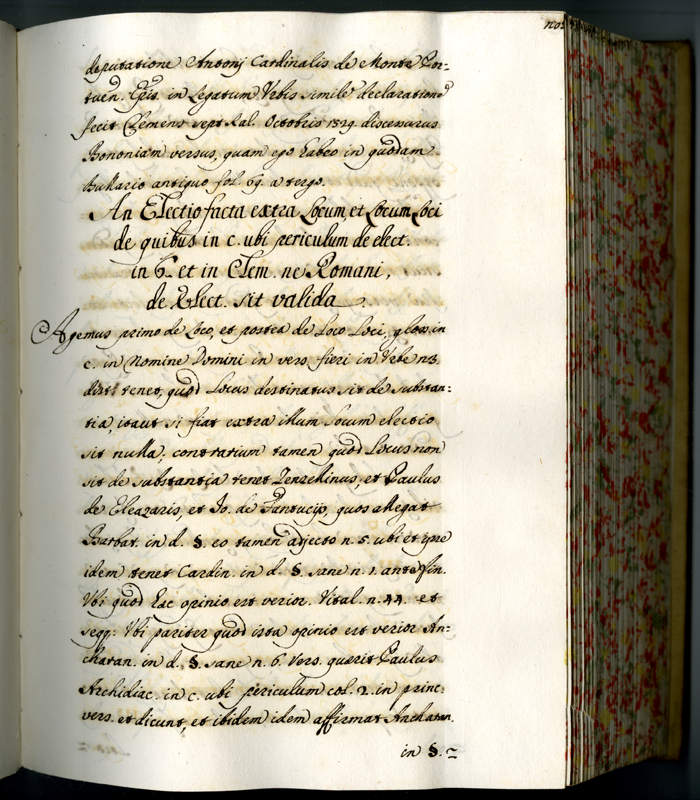 deputatione Antonij Cardinalis de Monte Por=
tuen. Epis. in Legatum Urbis simile declaratione
fecit Clemens sept. Kal. Octobris 1529. discessurus
Bononiam versus, quam ego habeo in quodam
Bullario antiquo fol. 69. a tergo.
An Electio facta extra Locum, et Locum Loci
de quibus in c. ubi periculum de elect.
in 6. et in Clem. ne Romani,
de Elect. sit valida
Agemus primo de Loco, et postea de Loco Loci, glos. in
c. in Nomine Domini in vers. fieri in Urbe n3.
dist. tenet, quod Locus destinatus sit de substan=
tia, itaut si fiat extra illum locum electio
sit nulla; contrarium tamen quod Locus non
sit de substantia tenet Zenzelinus, et Paulus
de Eleazaris, et Io. de Fantucijs, quos allegat
Barbat. in d. §. eo tamen adjecto n. 5. ubi et ipse
idem tenet Cardin. in d. §. sane n. 1. ante fin.
Ubi quod haec opinio est verior. Vital. n. 44. et
seqq: Ubi pariter quod ista opinio est verior An=
charan. in d. §. sane n. 6. vers. querit Paulus
Archidiac. in c. ubi periculum col. 2. in princ:
vers. et dicunt, et ibidem idem affirmat Ancharan.
in §.